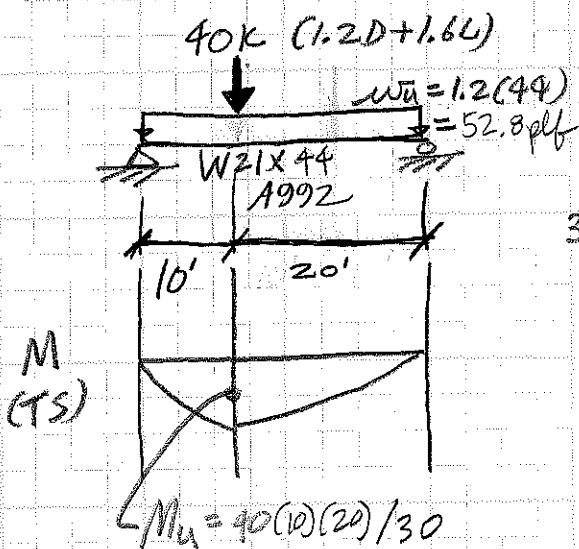 40K (1.2D+1.6L)
wu = 1.2(44)
= 52.8 plf
W21X44
A992
10' 20'
M
(TS)
Mu = 40(10)(20)/30